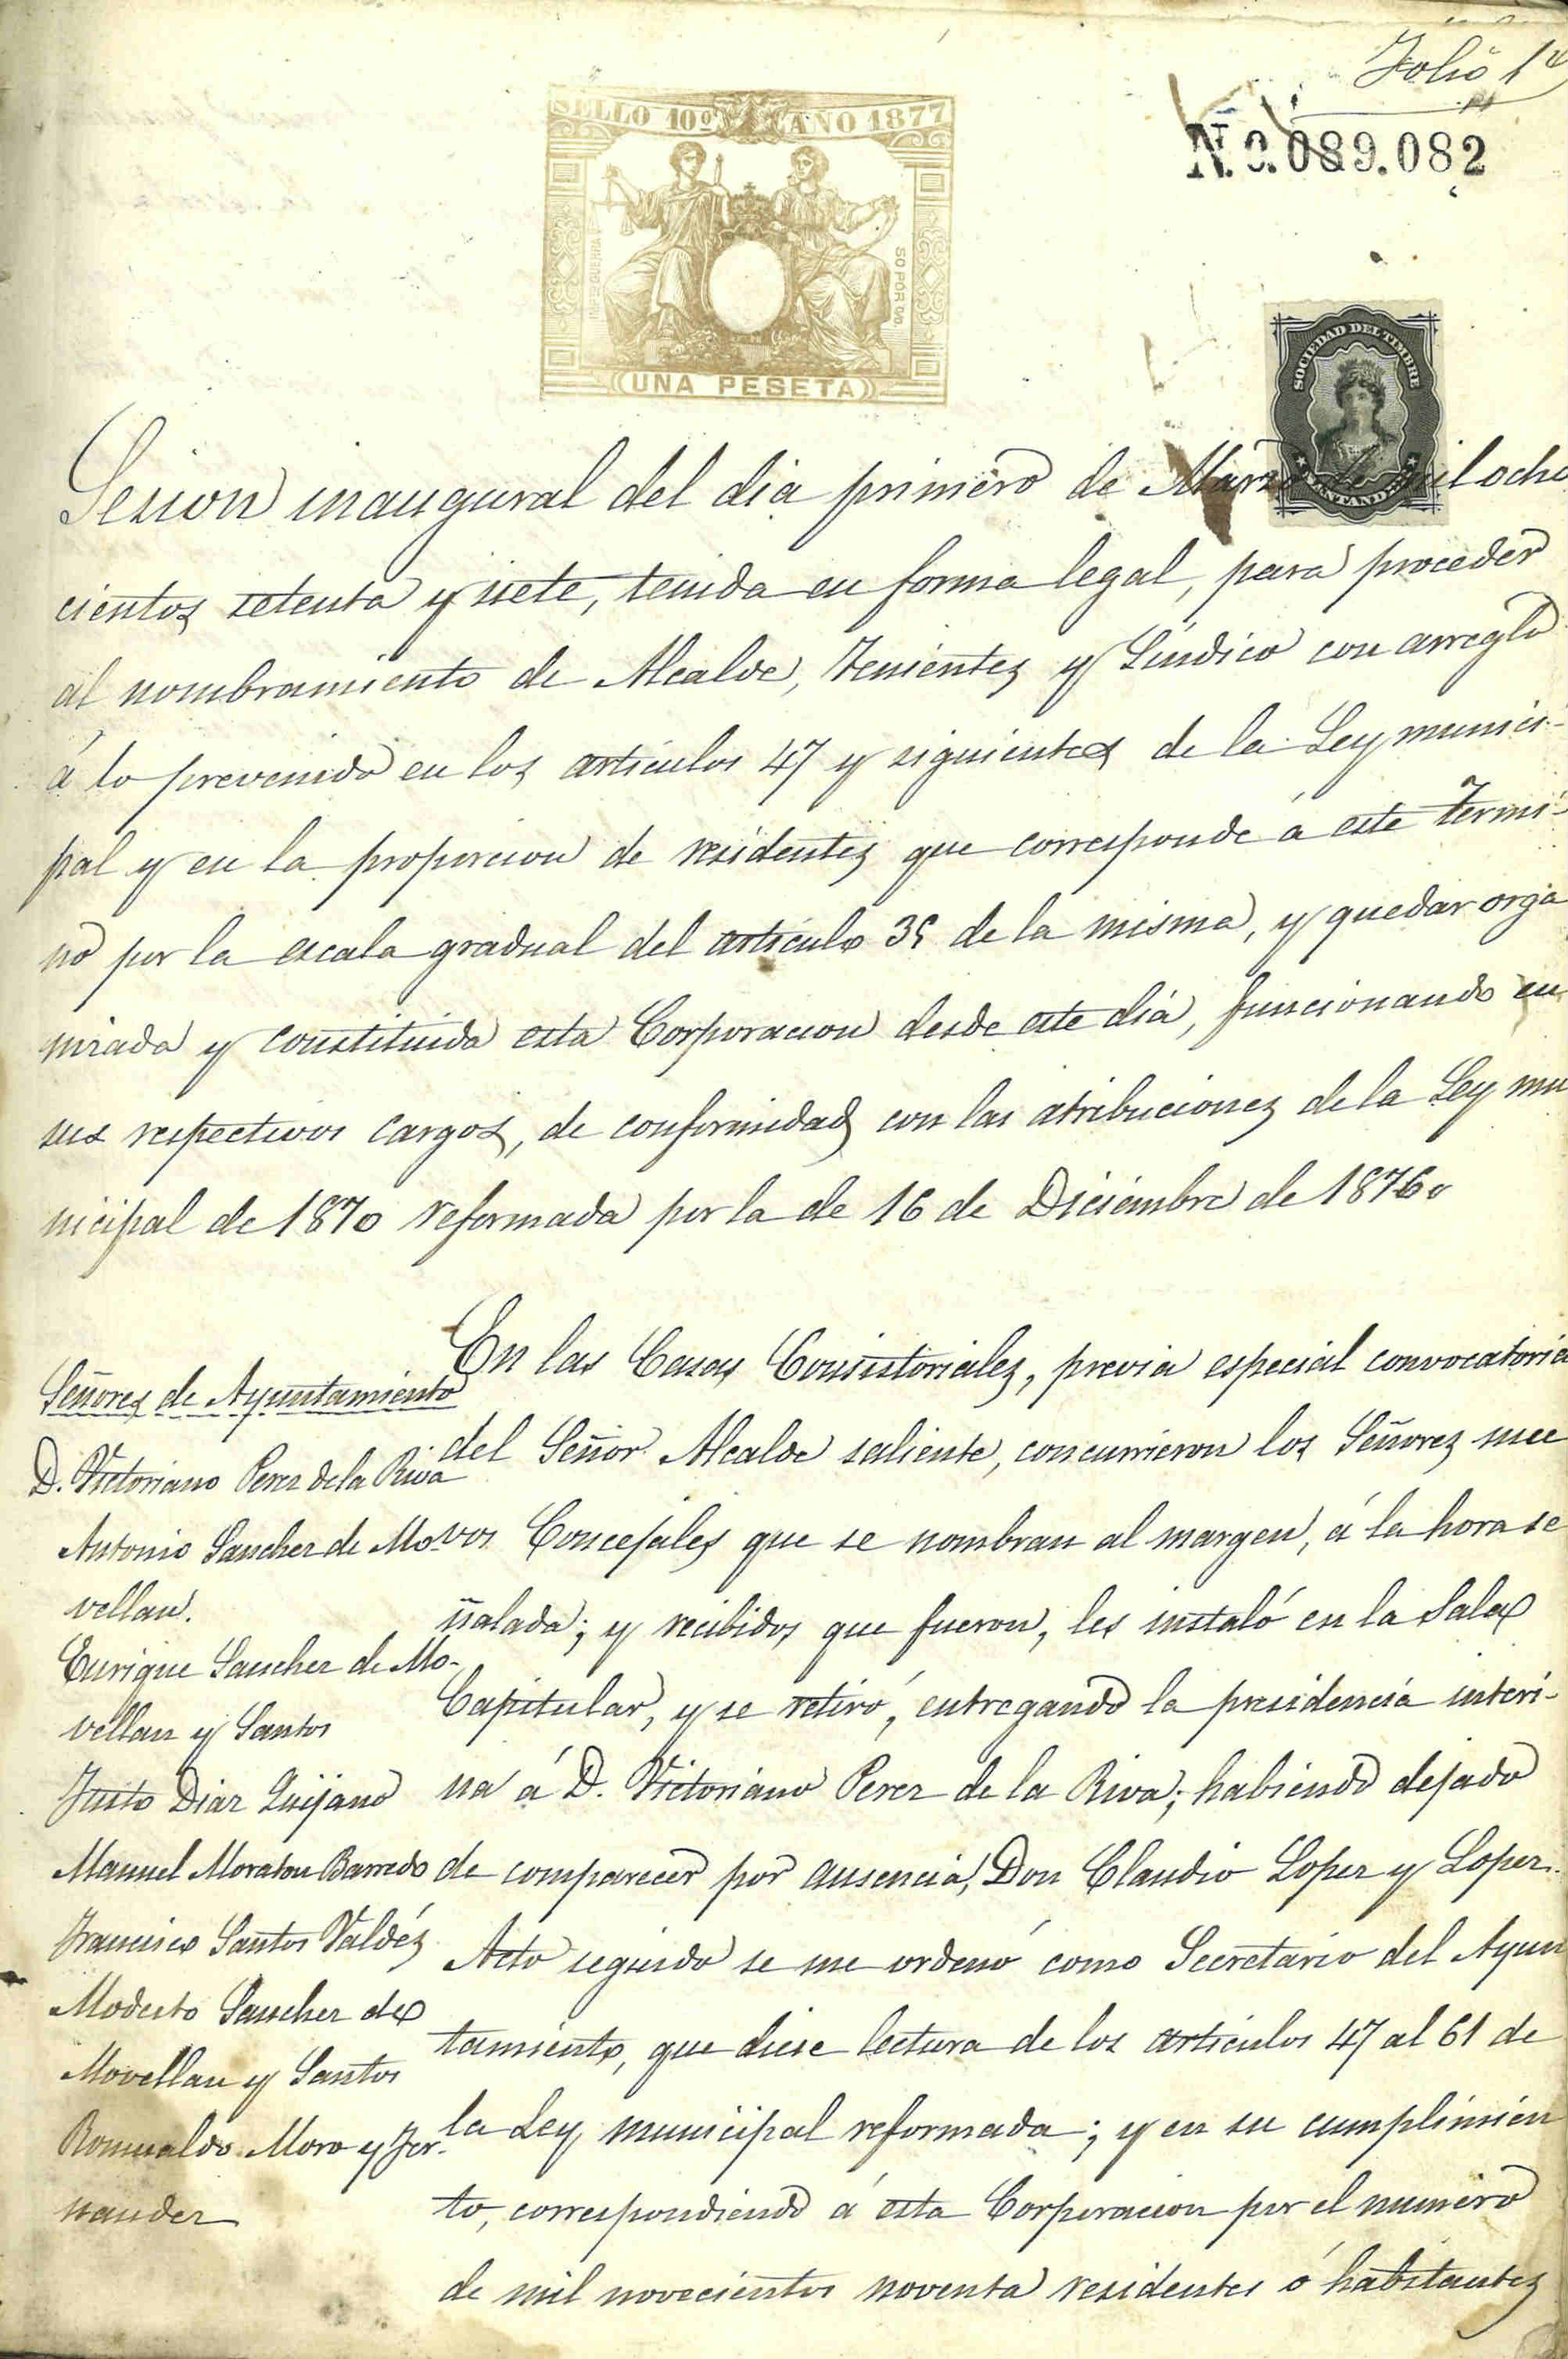 Folio 1º
SELLO 10º AÑO 1877
N. 0.089.082
UNA PESETA
SOCIEDAD DEL TIMBRE
Sesion inaugural del dia primero de Marzo de mil ocho
cientos setenta y siete, tenida en forma legal, para proceder
al nombramiento de Alcalde, Tenientes y Síndico con arreglo
á lo prevenido en los artículos 47 y siguientes de la Ley munici-
pal y en la proporcion de residentes que corresponde á este termi-
no por la escala gradual del artículo 35 de la misma, y quedar orga
nizada y constituida esta Corporacion desde este dia, funcionando en
sus respectivos cargos, de conformidad con las atribuciones de la Ley mu
nicipal de 1870 reformada por la de 16 de Diciembre de 1876.
Señores de Ayuntamiento
D. Victoriano Perez de la Riva
Antonio Sanchez de Mo-
vellan.
Enrique Sanchez de Mo-
vellan y Santos
Justo Diaz Quijano
Manuel Moraton Barredo
Francisco Santos Valdés
Modesto Sanchez de
Movellan y Santos
Romualdo Moro y Fer-
nandez
En las Casas Consistoriales, previa especial convocatoria
del Señor Alcalde saliente, concurrieron los Señores nue
vos Concejales que se nombran al margen, á la hora se
ñalada; y recibidos que fueron, les instaló en la Sala
Capitular, y se retiró, entregando la presidencia interi-
na á D. Victoriano Perez de la Riva; habiendo dejado
de comparecer por ausencia, Don Claudio Lopez y Lopez.
Acto seguido se me ordenó como Secretario del Ayun
tamiento, que diese lectura de los artículos 47 al 61 de
la Ley municipal reformada; y en su cumplimien
to, correspondiendo á esta Corporacion por el número
de mil novecientos noventa residentes ó habitantes